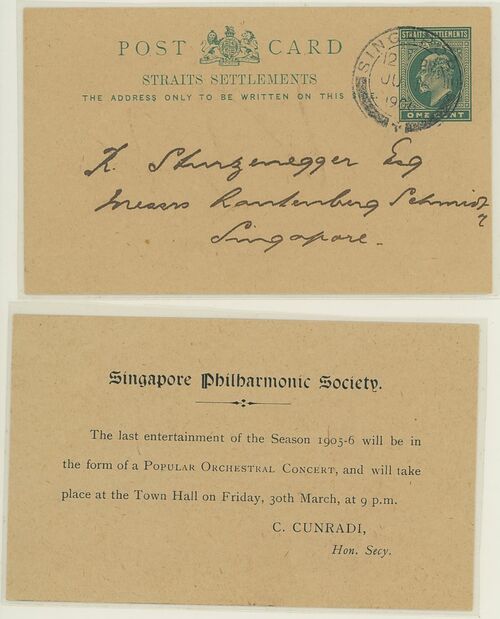 POST CARD
STRAITS SETTLEMENTS
THE ADDRESS ONLY TO BE WRITTEN ON THIS
STRAITS SETTLEMENTS
ONE CENT
Sturzenegger Esq
Messrs Rautenberg Schmidt
Singapore.
Singapore Philharmonic Society.
The last entertainment of the Season 1905-6 will be in
the form of a POPULAR ORCHESTRAL CONCERT, and will take
place at the Town Hall on Friday, 30th March, at 9 p.m.
C. CUNRADI,
Hon. Secy.